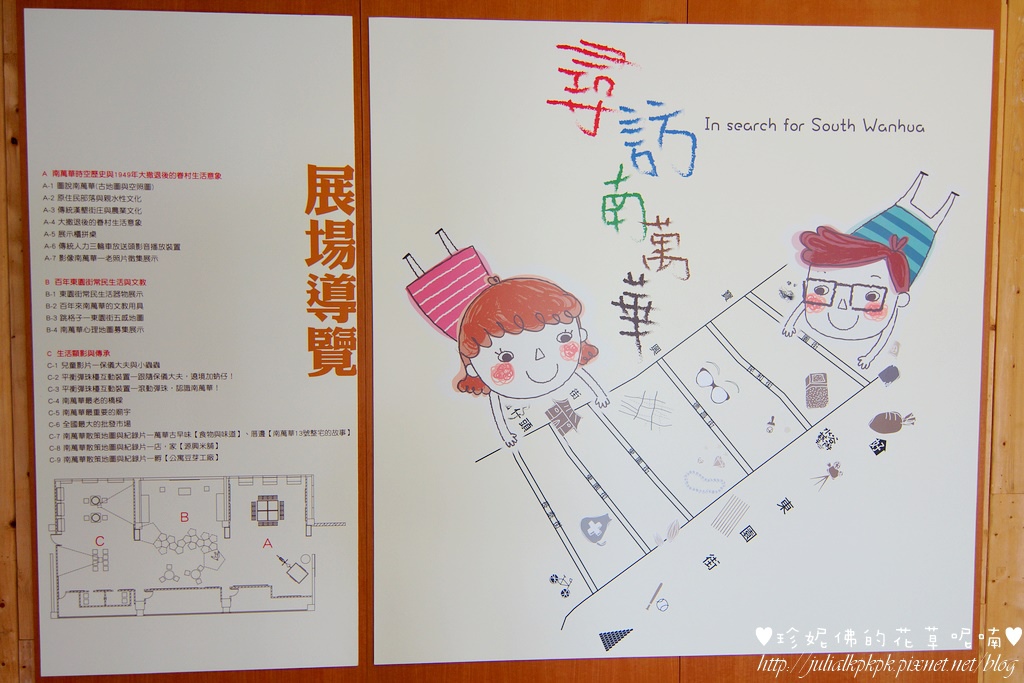 展場導覽
A 南萬華時空歷史與1949年大撤退後的眷村生活意象
A-1 圖說南萬華(古地圖與空照圖)
A-2 原住民部落與親水性文化
A-3 傳統漢墾街庄與農業文化
A-4 大撤退後的眷村生活意象
A-5 展示櫃拼桌
A-6 傳統人力三輪車放送頭影音播放裝置
A-7 影像南萬華—老照片徵集展示
B 百年東園街常民生活與文教
B-1 東園街常民生活器物展示
B-2 百年來南萬華的文教用具
B-3 跳格子—東園街五感地圖
B-4 南萬華心理地圖募集展示
C 生活顯影與傳承
C-1 兒童影片—保儀大夫與小蟲蟲
C-2 平衡彈珠檯互動裝置—跟隨保儀大夫，遶境加蚋仔！
C-3 平衡彈珠檯互動裝置—滾動彈珠，認識南萬華！
C-4 南萬華最老的橋樑
C-5 南萬華最重要的廟宇
C-6 全國最大的批發市場
C-7 南萬華散策地圖與紀錄片—萬華古早味【食物與味道】、厝邊【南萬華13號整宅的故事】
C-8 南萬華散策地圖與紀錄片—店，家【源興米舖】
C-9 南萬華散策地圖與紀錄片—孵【公寓豆芽工廠】
C
B
A
尋訪南萬華
In search for South Wanhua
寶興街
東園街
♥珍妮佛的花草呢喃♥
http://julialkpkpk.pixnet.net/blog